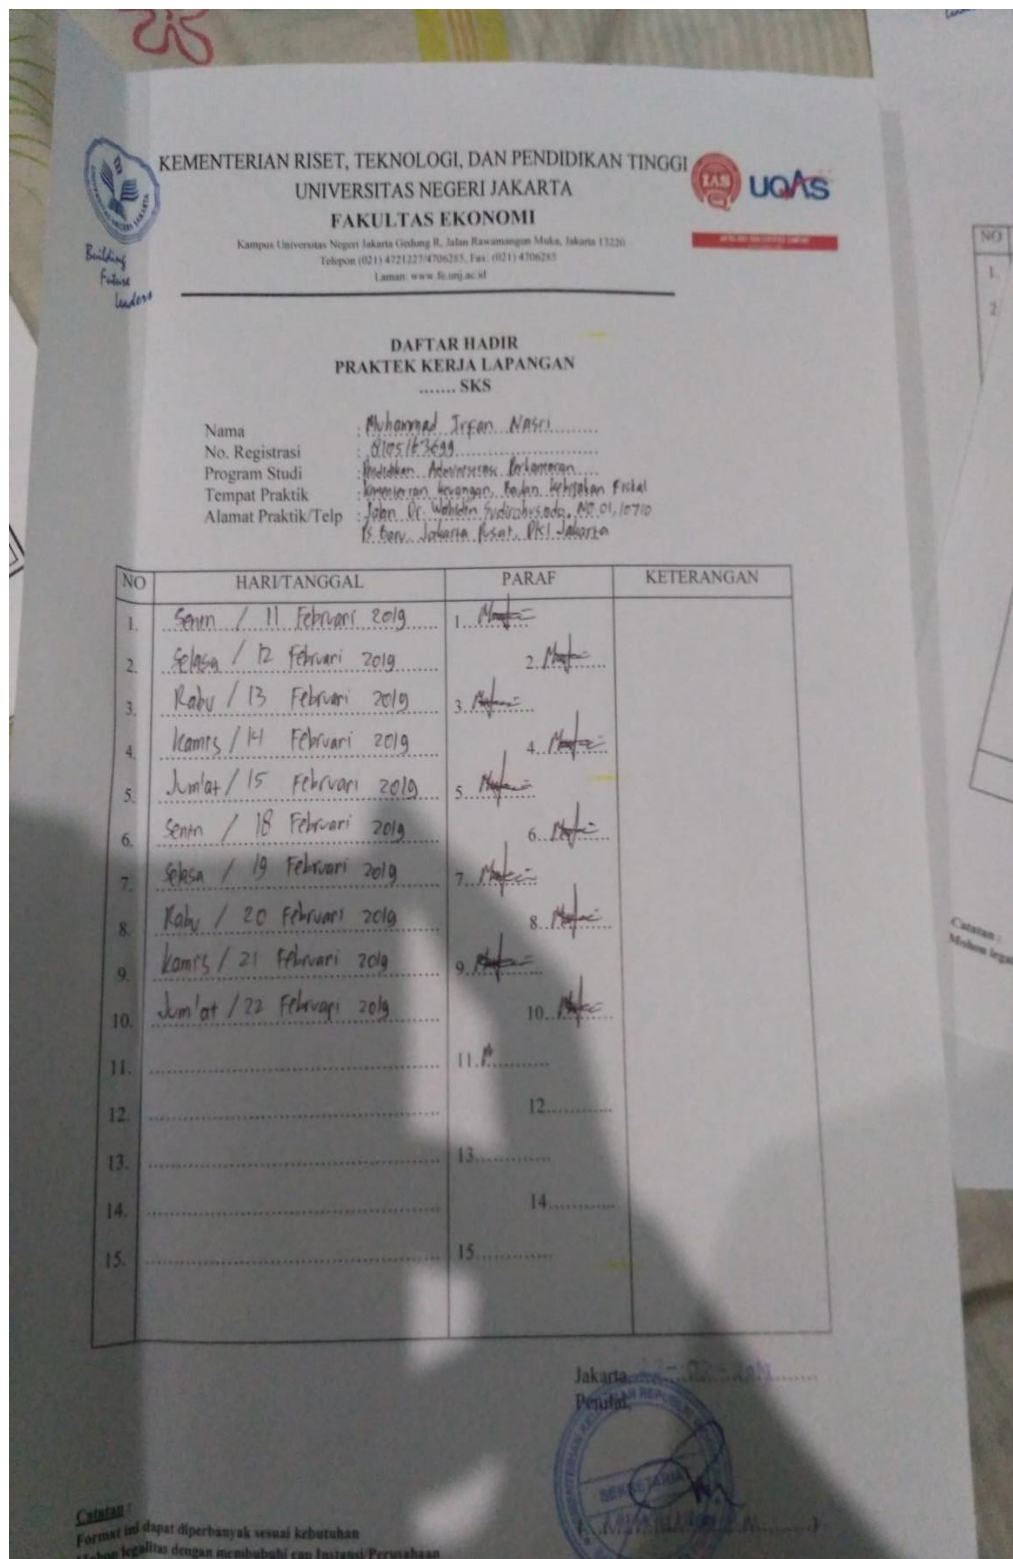 KEMENTERIAN RISET, TEKNOLOGI, DAN PENDIDIKAN TINGGI
UNIVERSITAS NEGERI JAKARTA
FAKULTAS EKONOMI
Kampus Universitas Negeri Jakarta Gedung R, Jalan Rawamangun Muka, Jakarta 13220
Telepon (021) 4721227/4706285, Fax: (021) 4706285
Laman: www.fe.unj.ac.id
Building
Future
Leaders
IAS
UQAS
DAFTAR HADIR
PRAKTEK KERJA LAPANGAN
....... SKS
Nama : Muhammad Irfan Nasri
No. Registrasi : 8105163699
Program Studi : Pendidikan Administrasi Perkantoran
Tempat Praktik : Kementerian Keuangan, Badan Kebijakan Fiskal
Alamat Praktik/Telp : Jalan Dr. Wahidin Sudirohusodo, No 01, 10710
Ps. Baru, Jakarta Pusat, DKI Jakarta
NO HARI/TANGGAL PARAF KETERANGAN
1. Senin / 11 Februari 2019 1.
2. Selasa / 12 Februari 2019 2.
3. Rabu / 13 Februari 2019 3.
4. Kamis / 14 Februari 2019 4.
5. Jum'at / 15 Februari 2019 5.
6. Senin / 18 Februari 2019 6.
7. Selasa / 19 Februari 2019 7.
8. Rabu / 20 Februari 2019 8.
9. Kamis / 21 Februari 2019 9.
10. Jum'at / 22 Februari 2019 10.
11. 11.
12. 12.
13. 13.
14. 14.
15. 15.
Jakarta,
Penilai,
SEKRETARIA
Catatan :
Format ini dapat diperbanyak sesuai kebutuhan
Mohon legalitas dengan membubuhi cap Instansi/Perusahaan
NO
1.
2
Catatan :
Mohon lega